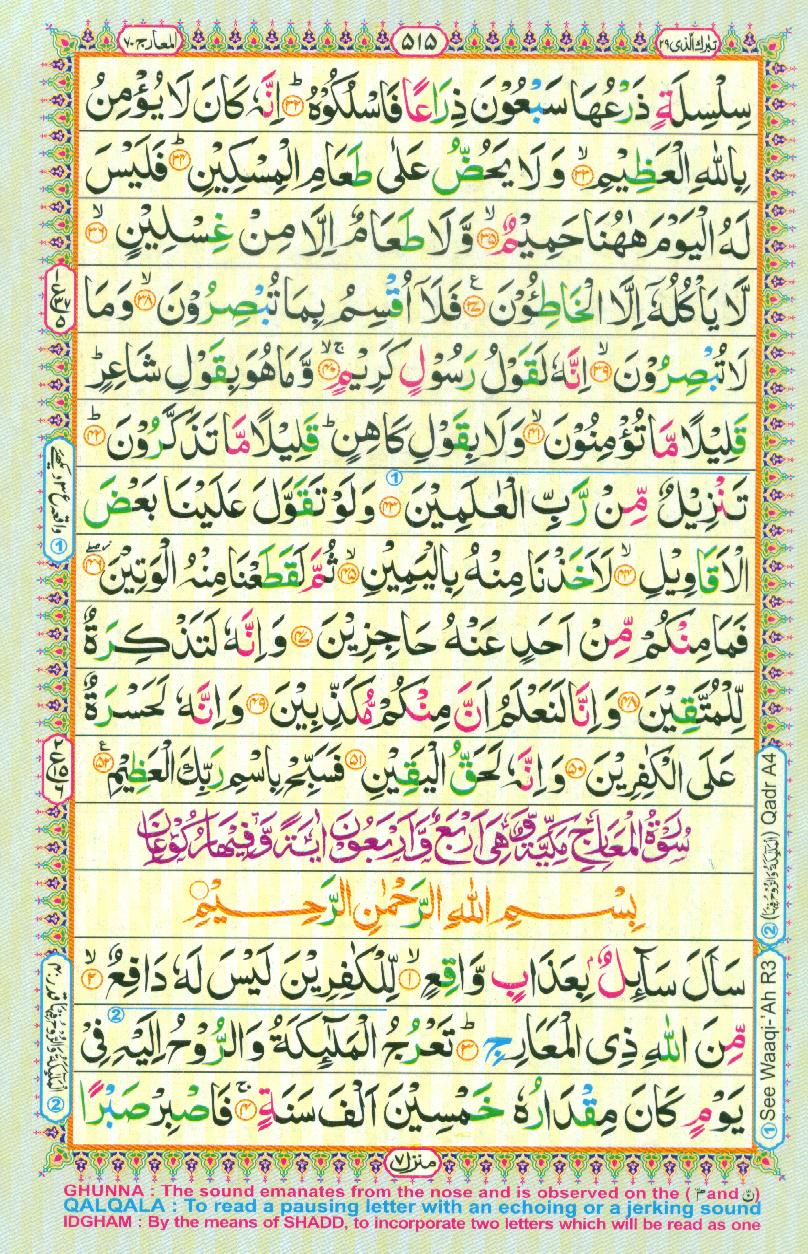 تبٰرك الذی ٢٩
٥١٥
المعارج ٧٠
سِلْسِلَةٍ ذَرْعُهَا سَبْعُوْنَ ذِرَاعًا فَاسْلُكُوْهُ ؕ﴿٣٢﴾ اِنَّهٗ كَانَ لَا يُؤْمِنُ
بِاللّٰهِ الْعَظِيْمِ ۙ﴿٣٣﴾ وَ لَا يَحُضُّ عَلٰى طَعَامِ الْمِسْكِيْنِ ؕ﴿٣٤﴾ فَلَيْسَ
لَهُ الْيَوْمَ هٰهُنَا حَمِيْمٌ ۙ﴿٣٥﴾ وَّ لَا طَعَامٌ اِلَّا مِنْ غِسْلِيْنٍ ۙ﴿٣٦﴾
لَّا يَاْكُلُهٗۤ اِلَّا الْخَاطِـُٔوْنَ ۠﴿٣٧﴾ فَلَاۤ اُقْسِمُ بِمَا تُبْصِرُوْنَ ۙ﴿٣٨﴾ وَ مَا
لَا تُبْصِرُوْنَ ۙ﴿٣٩﴾ اِنَّهٗ لَقَوْلُ رَسُوْلٍ كَرِيْمٍ ۚۙ﴿٤٠﴾ وَّ مَا هُوَ بِقَوْلِ شَاعِرٍ ؕ
قَلِيْلًا مَّا تُؤْمِنُوْنَ ۙ﴿٤١﴾ وَ لَا بِقَوْلِ كَاهِنٍ ؕ قَلِيْلًا مَّا تَذَكَّرُوْنَ ؕ﴿٤٢﴾
تَنْزِيْلٌ مِّنْ رَّبِّ الْعٰلَمِيْنَ ﴿٤٣﴾ وَ لَوْ تَقَوَّلَ عَلَيْنَا بَعْضَ
الْاَقَاوِيْلِ ۙ﴿٤٤﴾ لَاَخَذْنَا مِنْهُ بِالْيَمِيْنِ ۙ﴿٤٥﴾ ثُمَّ لَقَطَعْنَا مِنْهُ الْوَتِيْنَ ؗۖ﴿٤٦﴾
فَمَا مِنْكُمْ مِّنْ اَحَدٍ عَنْهُ حَاجِزِيْنَ ﴿٤٧﴾ وَ اِنَّهٗ لَتَذْكِرَةٌ
لِّلْمُتَّقِيْنَ ﴿٤٨﴾ وَ اِنَّا لَنَعْلَمُ اَنَّ مِنْكُمْ مُّكَذِّبِيْنَ ﴿٤٩﴾ وَ اِنَّهٗ لَحَسْرَةٌ
عَلَى الْكٰفِرِيْنَ ﴿٥٠﴾ وَ اِنَّهٗ لَحَقُّ الْيَقِيْنِ ﴿٥١﴾ فَسَبِّحْ بِاسْمِ رَبِّكَ الْعَظِيْمِ ۠﴿٥٢﴾
سُوْرَةُ الْمَعَارِجِ مَكِّيَّةٌ وَّهِىَ اَرْبَعٌ وَّاَرْبَعُوْنَ اٰيَةً وَّفِيْهَا رُكُوْعَانِ
بِسْمِ اللّٰهِ الرَّحْمٰنِ الرَّحِيْمِ
سَاَلَ سَآئِلٌۢ بِعَذَابٍ وَّاقِعٍ ۙ﴿١﴾ لِّلْكٰفِرِيْنَ لَيْسَ لَهٗ دَافِعٌ ۙ﴿٢﴾
مِّنَ اللّٰهِ ذِى الْمَعَارِجِ ؕ﴿٣﴾ تَعْرُجُ الْمَلٰٓئِكَةُ وَ الرُّوْحُ اِلَيْهِ فِىْ
يَوْمٍ كَانَ مِقْدَارُهٗ خَمْسِيْنَ اَلْفَ سَنَةٍ ۚ﴿٤﴾ فَاصْبِرْ صَبْرًا
منزل ٧
① See Waaqi-'Ah R3
② (الملٰئكة والروح فيها) Qadr A4
GHUNNA : The sound emanates from the nose and is observed on the ( مّ and نّ )
QALQALA : To read a pausing letter with an echoing or a jerking sound
IDGHAM : By the means of SHADD, to incorporate two letters which will be read as one